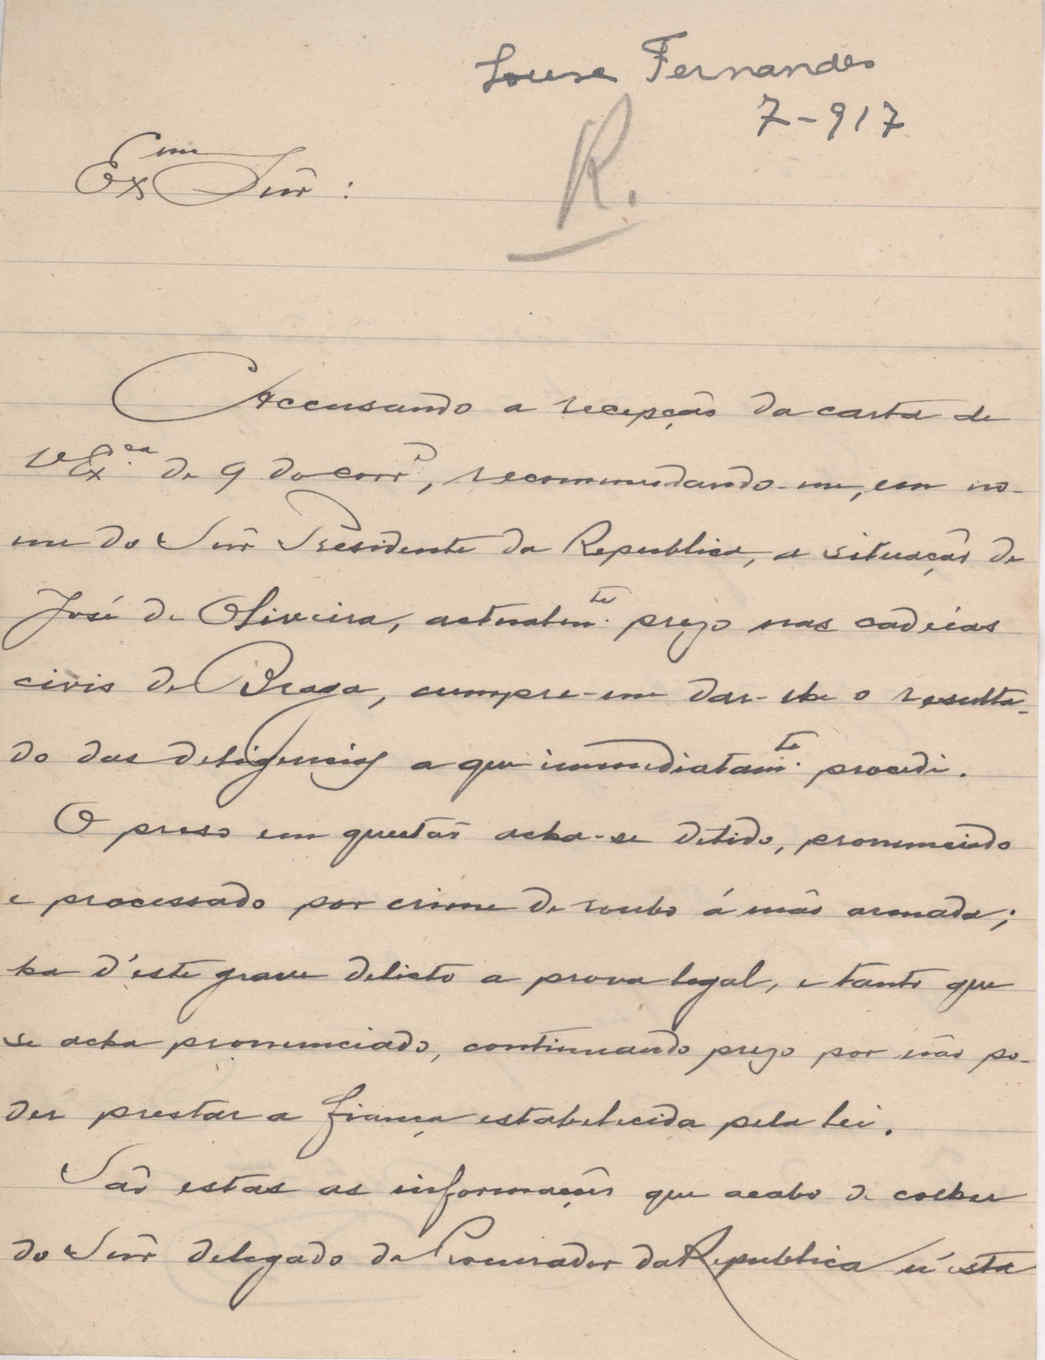 Fernandes
7-917
R.
Exmo Snr :
Accusando a recepção da carta de
V Ex.cia de 9 do corr.e, recommendando-me, em no-
me do Snr Presidente da Republica, a situação de
José de Oliveira, actualm.te prezo nas cadeias
civis de Braga, cumpre-me dar-lhe o resulta-
do das deligencias a que immediatam.te procedi.
O preso em questão acha-se detido, pronunciado
e processado por crime de roubo á mão armada;
ha d'este grave delicto a prova legal, e tanto que
se acha pronunciado, continuando prezo por não po-
der prestar a fiança estabelecida pela lei.
São estas as informações que acabo de colher
do Snr delegado do Procurador da Republica n'esta